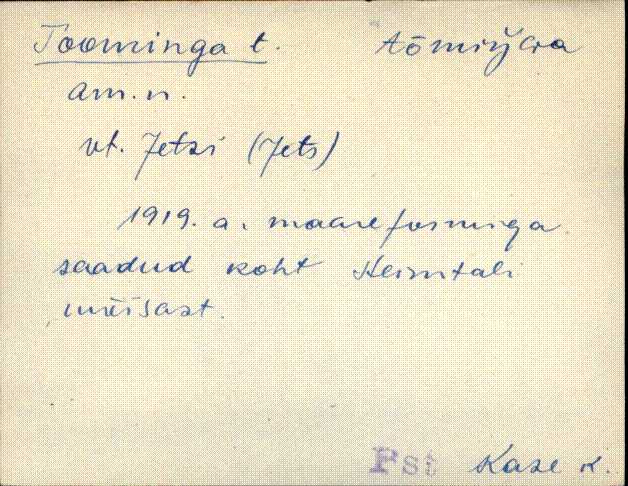 Toominga t.
am. n.
vt. Jetsi (Jets)
1919. a. maareformiga
saadud koht Heimtali
mõisast.
Pst Kase k.